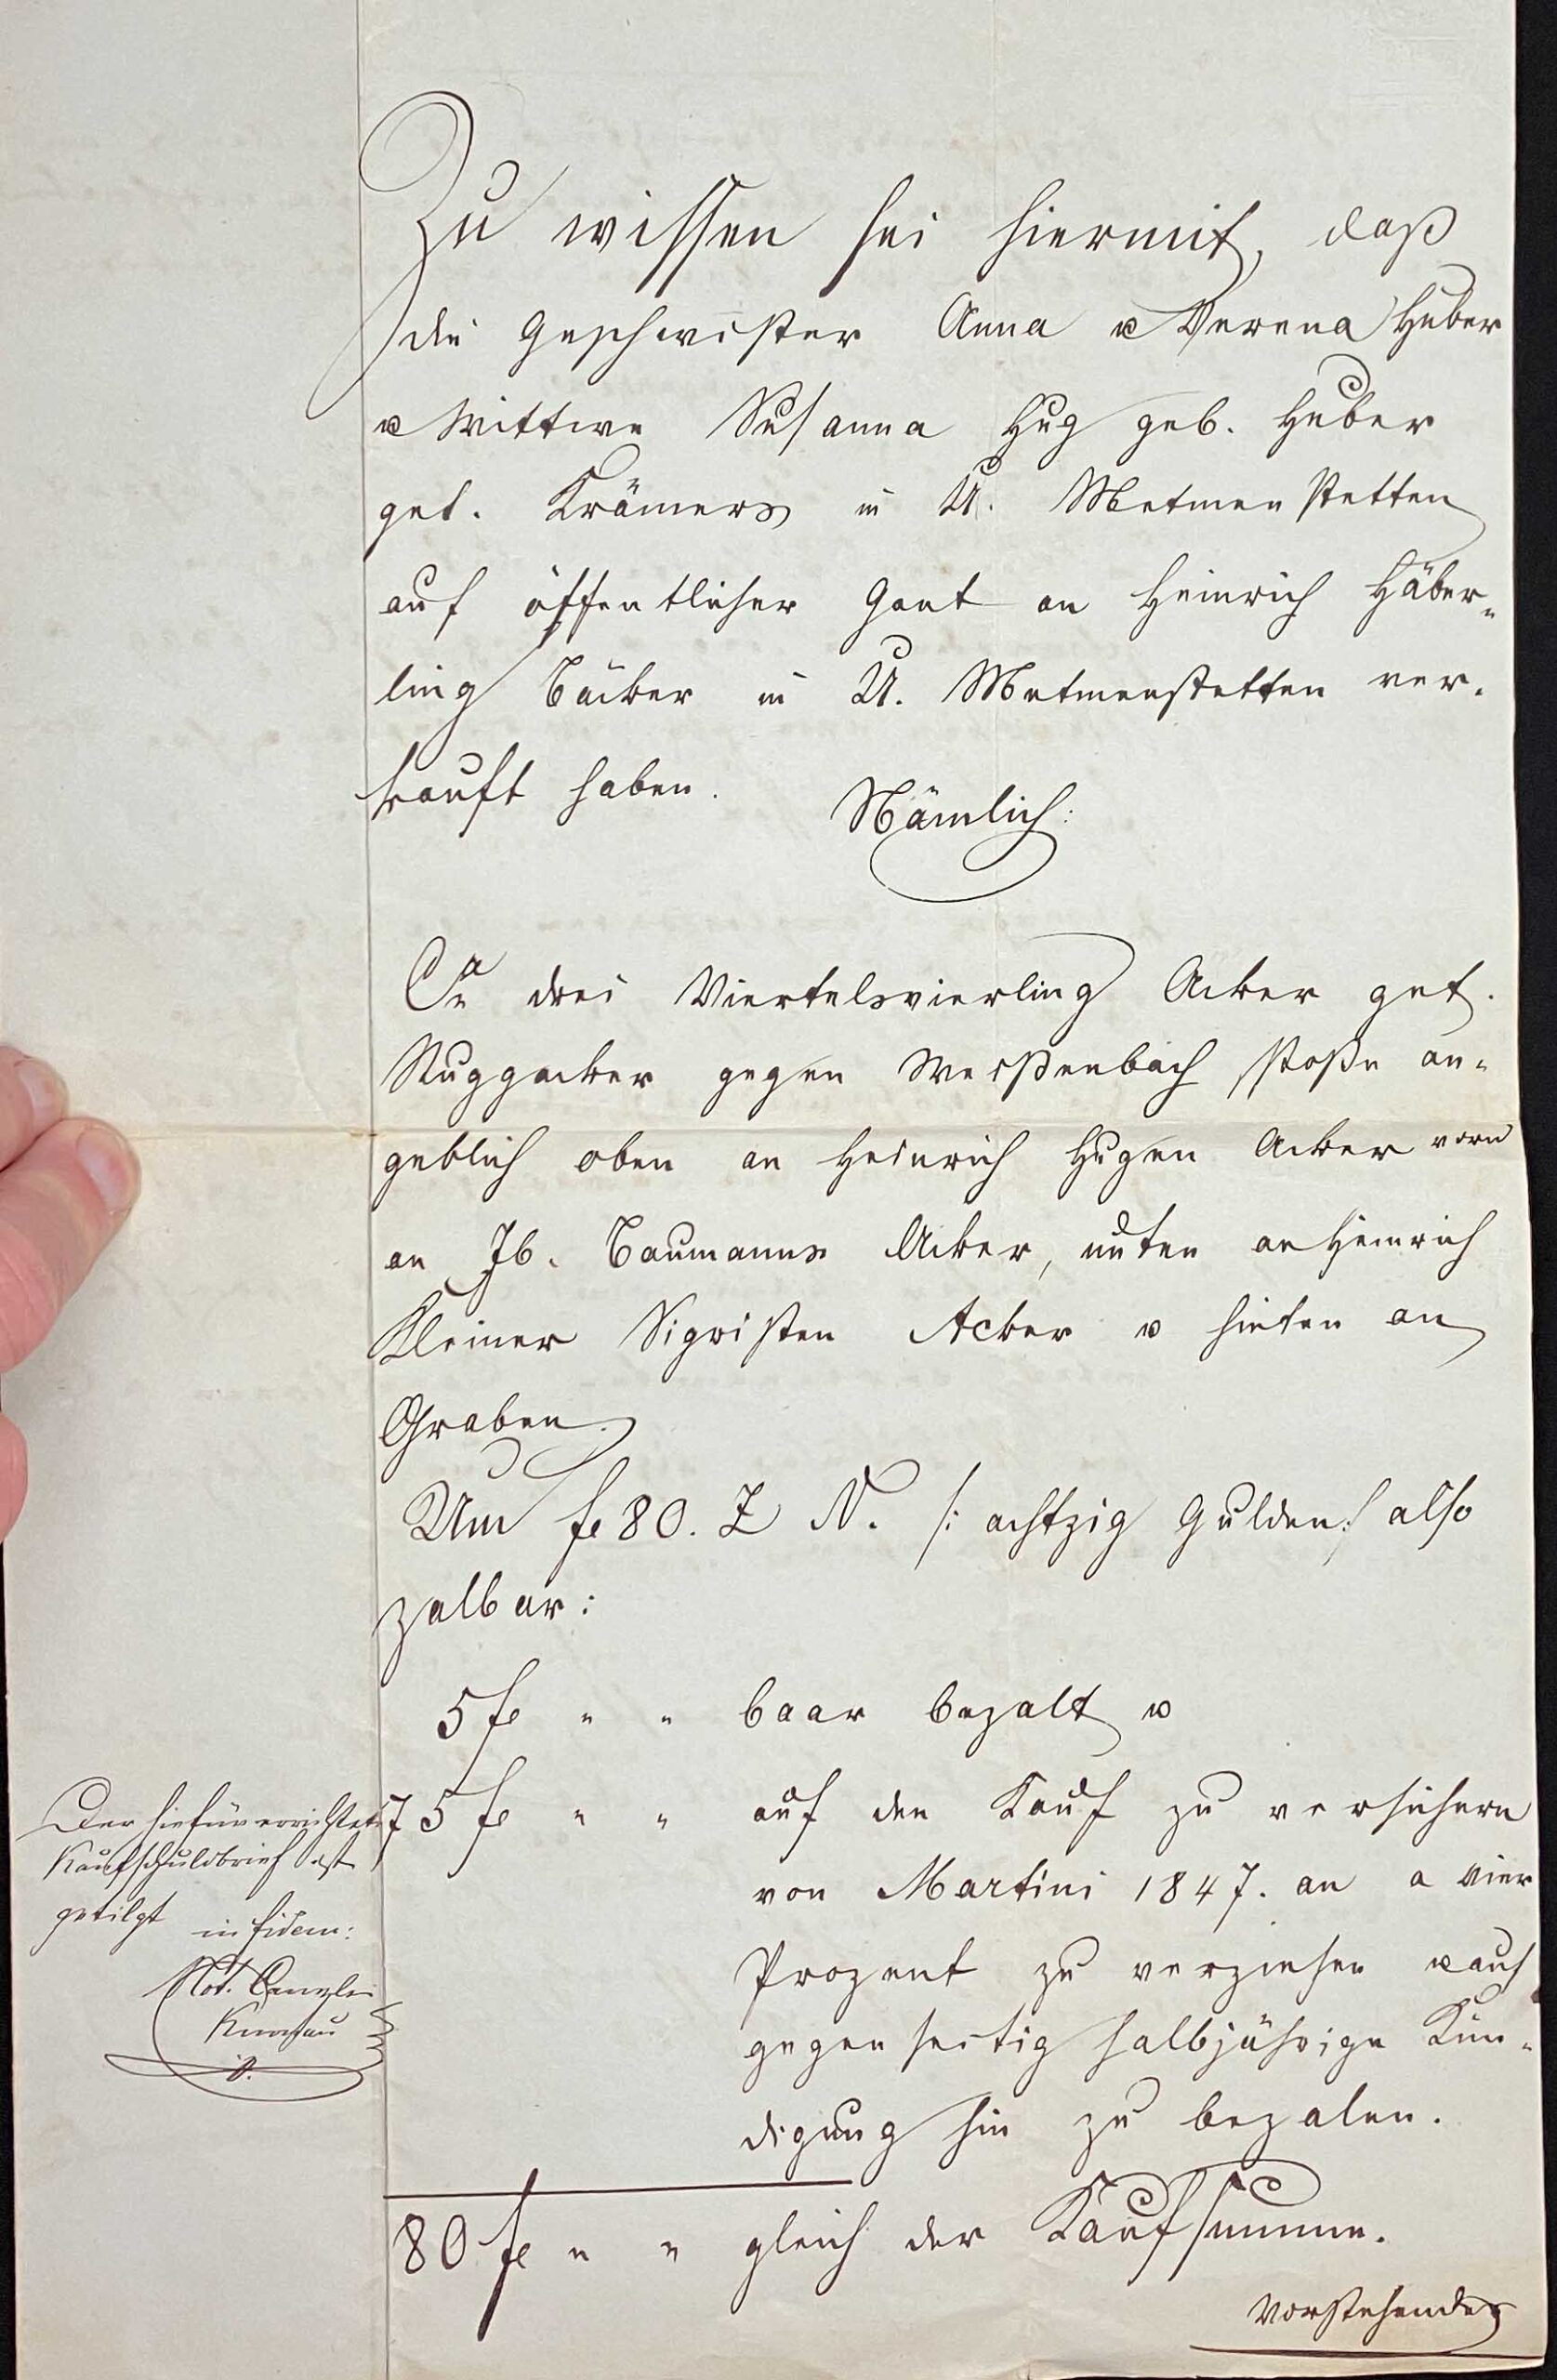 Zu wissen sei hiermit, daß
die Geschwister Anna u Verena Huber
u Wittwe Susanna Hug geb. Huber
get. Krämers in U. Metmenstetten
auf öffentlicher Gant an Heinrich Häber-
ling Bäcker in U. Metmenstetten ver-
kauft haben.
Nämlich:
Ca drei Viertelsvierling Acker get.
Ruggacker gegen Weißenbach stoße an-
geblich oben an Heinrich Hugen Acker vorn
an Jb. Baumanns Acker, unten an Heinrich
Kleiner Sigristen Acker u hinten an
Graben.
Um fl 80. Z N. /: achtzig Gulden :/ also
zalbar:
5 fl " " baar bezalt u
75 fl " " auf den Kauf zu versichern
von Martini 1847. an a vier
Prozent zu verzinsen u auf
gegenseitig halbjährige Kün-
digung hin zu bezalen.
80 fl " " gleich der Kaufsumme.
Vorstehendes
Der hiefür errichtete
Kaufschuldbrief ist
getilgt in fidem:
Not. Canzlei
Knonau